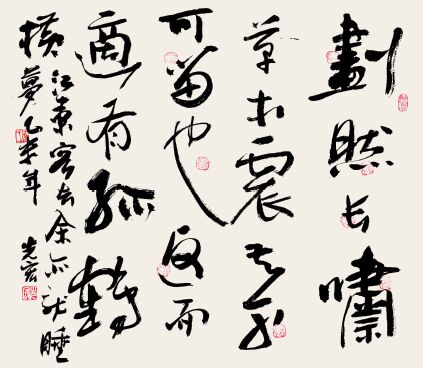 劃然长嘯
草木震其不
可留也返而
適有孤鶴
江東客去余亦就睡
橫夢乙年